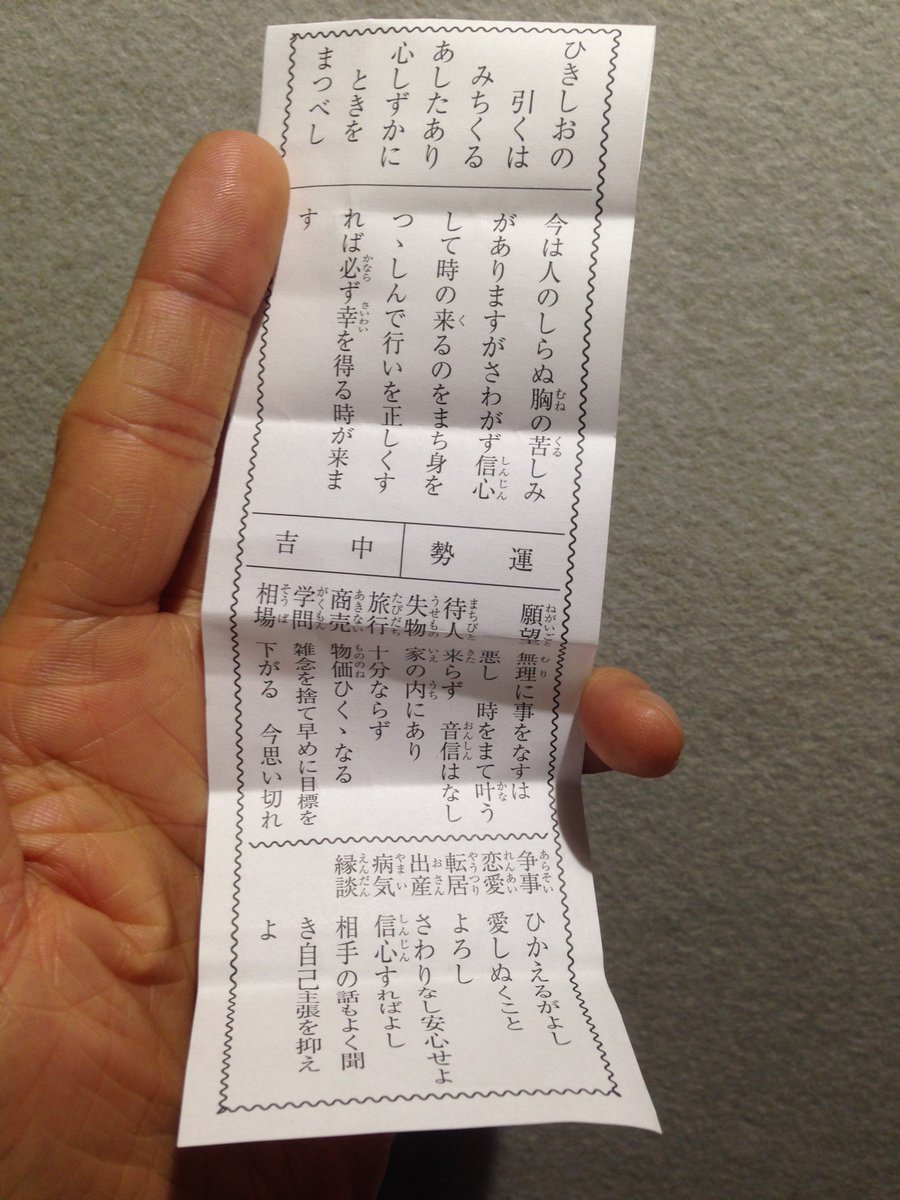 ひきしおの
引くは
みちくる
あしたあり
心しずかに
ときを
まつべし
今は人のしらぬ胸の苦しみ
がありますがさわがず信心
して時の来るのをまち身を
つゝしんで行いを正しくす
れば必ず幸を得る時が来ま
す
運勢 中吉
願望 無理に事をなすは
悪し 時をまて叶う
待人 来らず 音信はなし
失物 家の内にあり
旅行 十分ならず
商売 物価ひくゝなる
学問 雑念を捨て早めに目標を
相場 下がる 今思い切れ
争事 ひかえるがよし
恋愛 愛しぬくこと
転居 よろし
出産 さわりなし安心せよ
病気 信心すればよし
縁談 相手の話もよく聞
き自己主張を抑え
よ